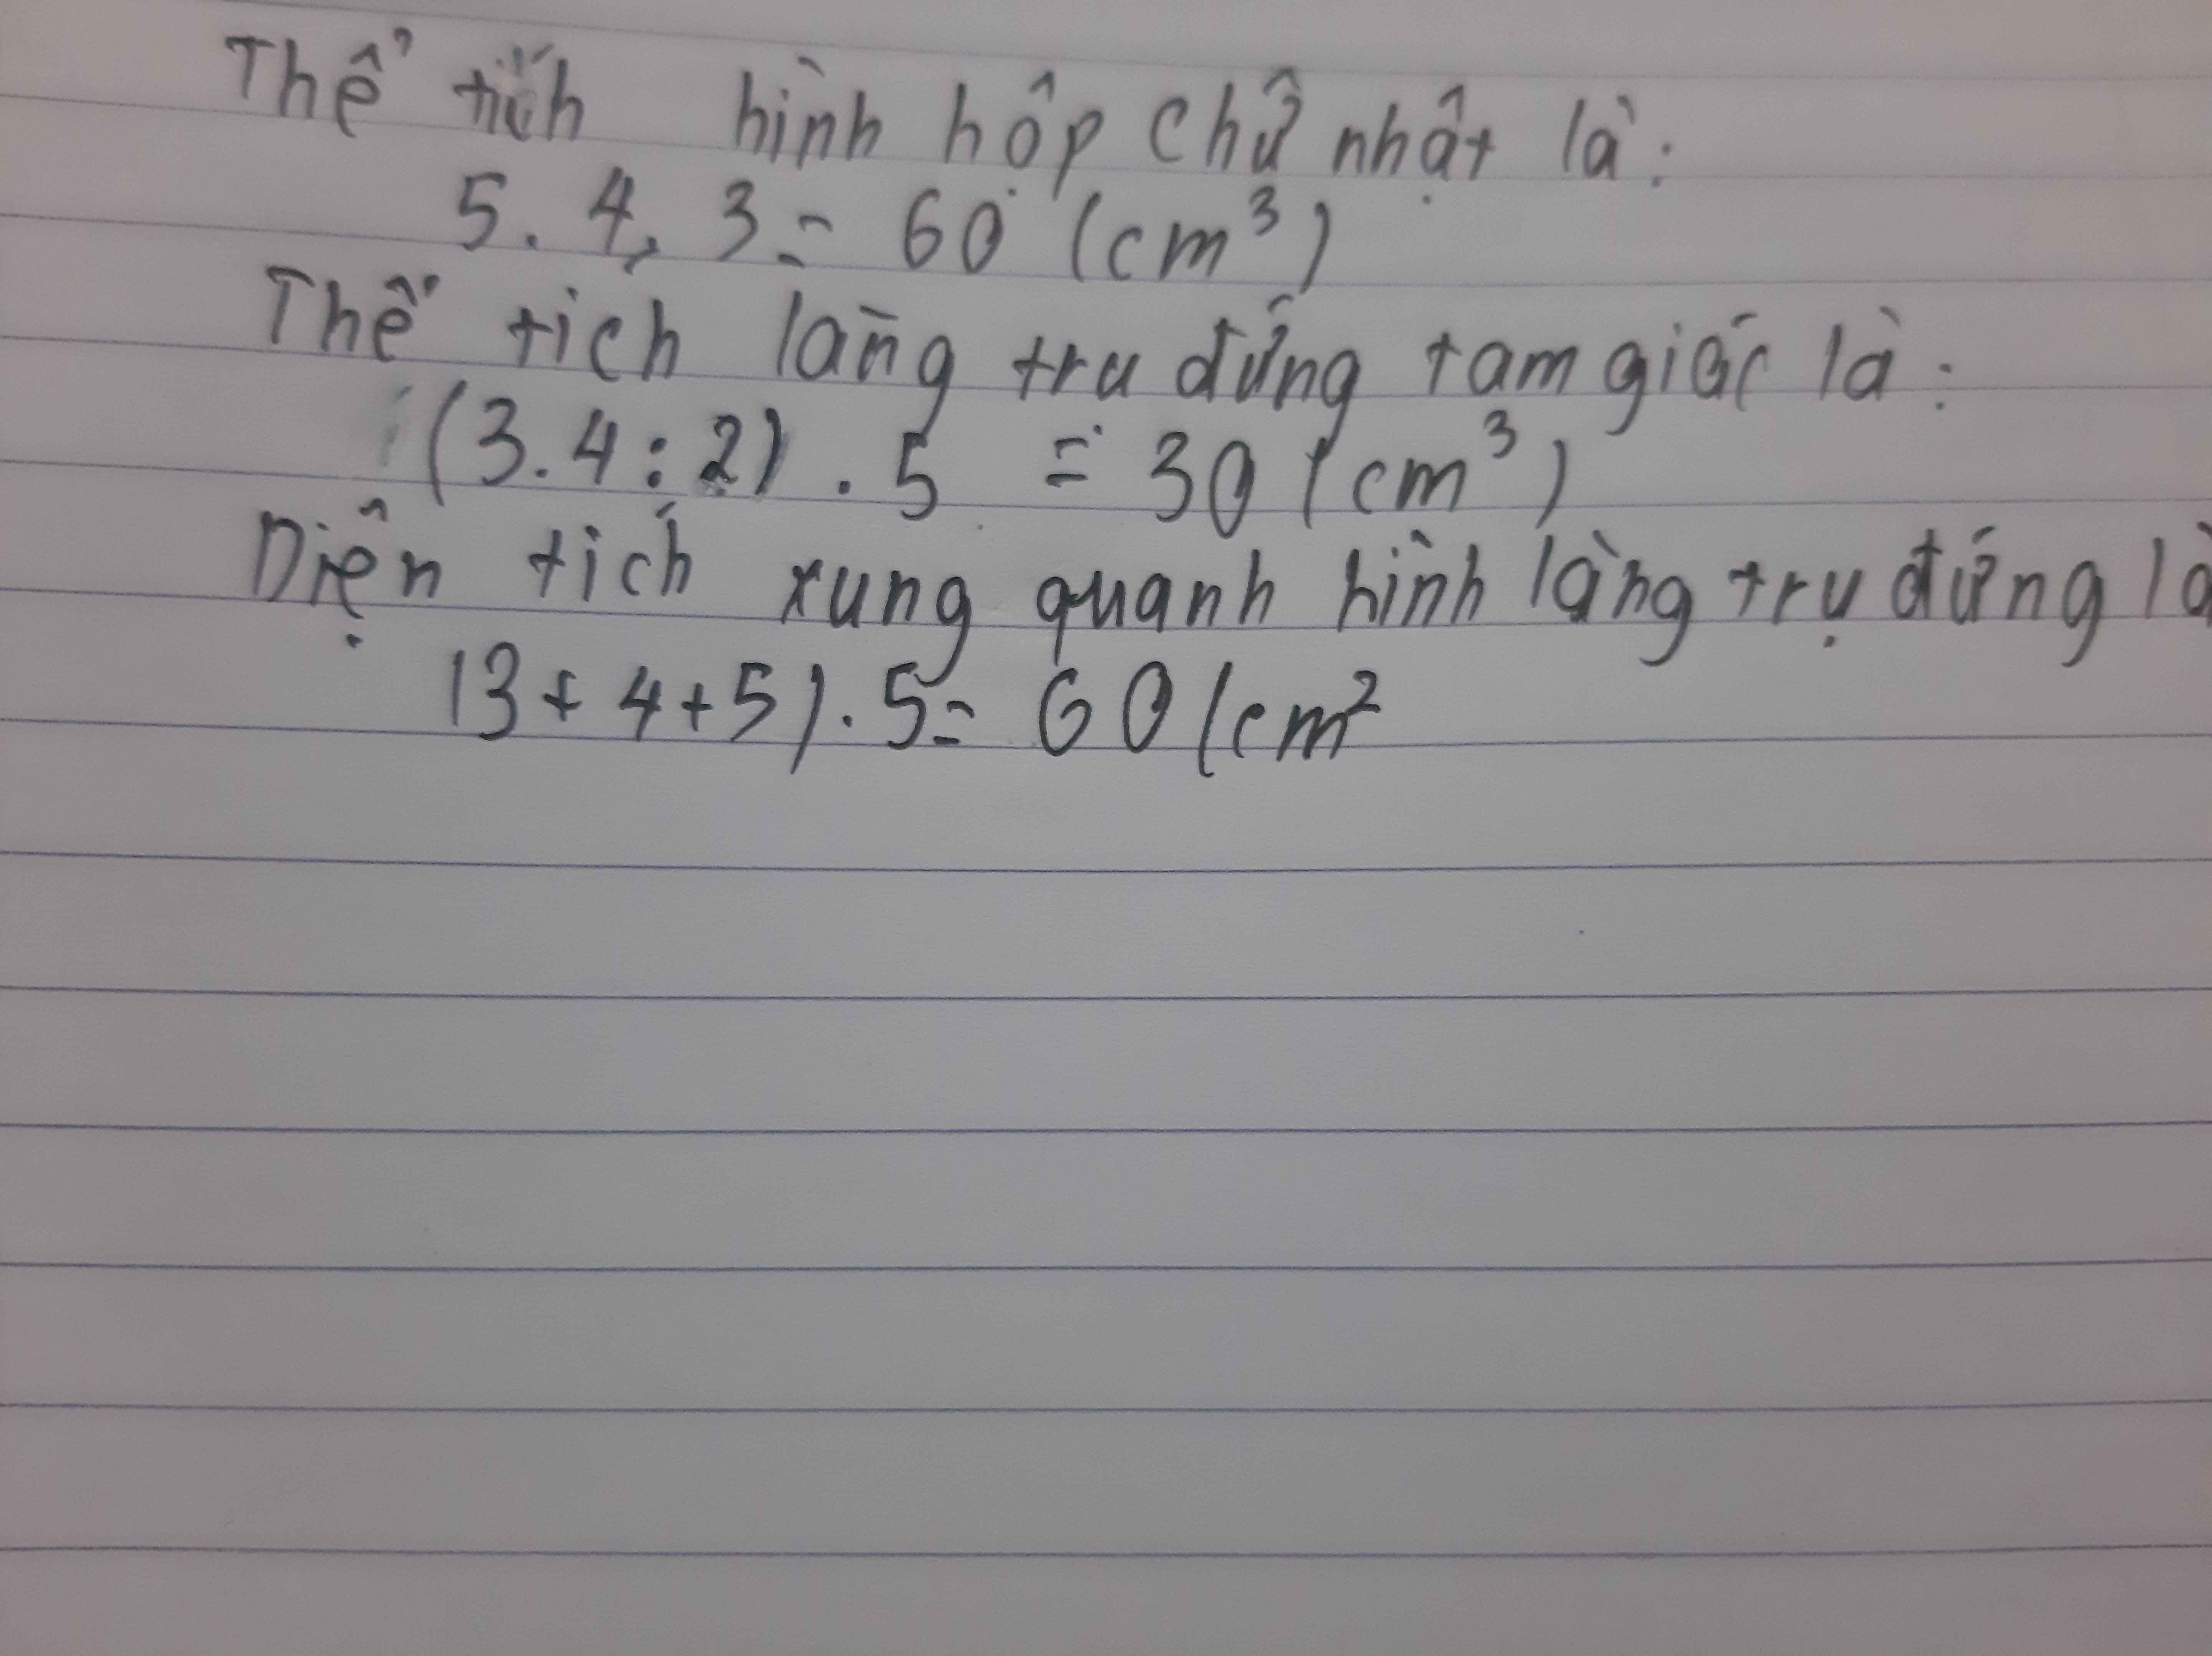 Thể tích hình hộp chữ nhật là:
5. 4. 3 = 60 (cm³)
Thể tích làng tru đứng tam giác là:
(3.4:2) . 5 = 30 (cm³)
Diện tích xung quanh hình làng trụ đứng là
(3+4+5).5= 60 (cm²